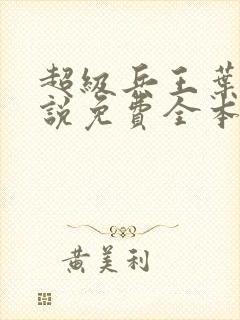 超級兵王葉
說免費全本
黃美利